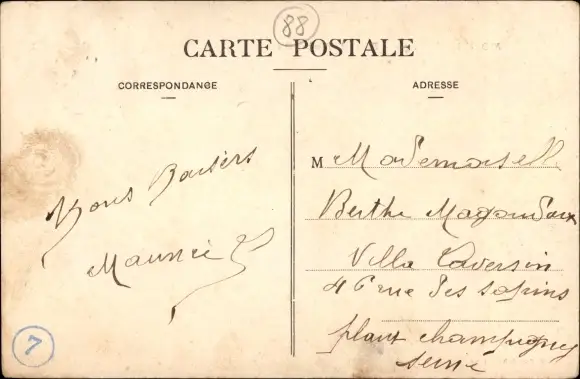 88
CARTE POSTALE
CORRESPONDANCE
ADRESSE
Bons Baisers
Maurice
M Mademoiselle
Berthe
Villa
46 rue des sapins
plant champigny
seine
7